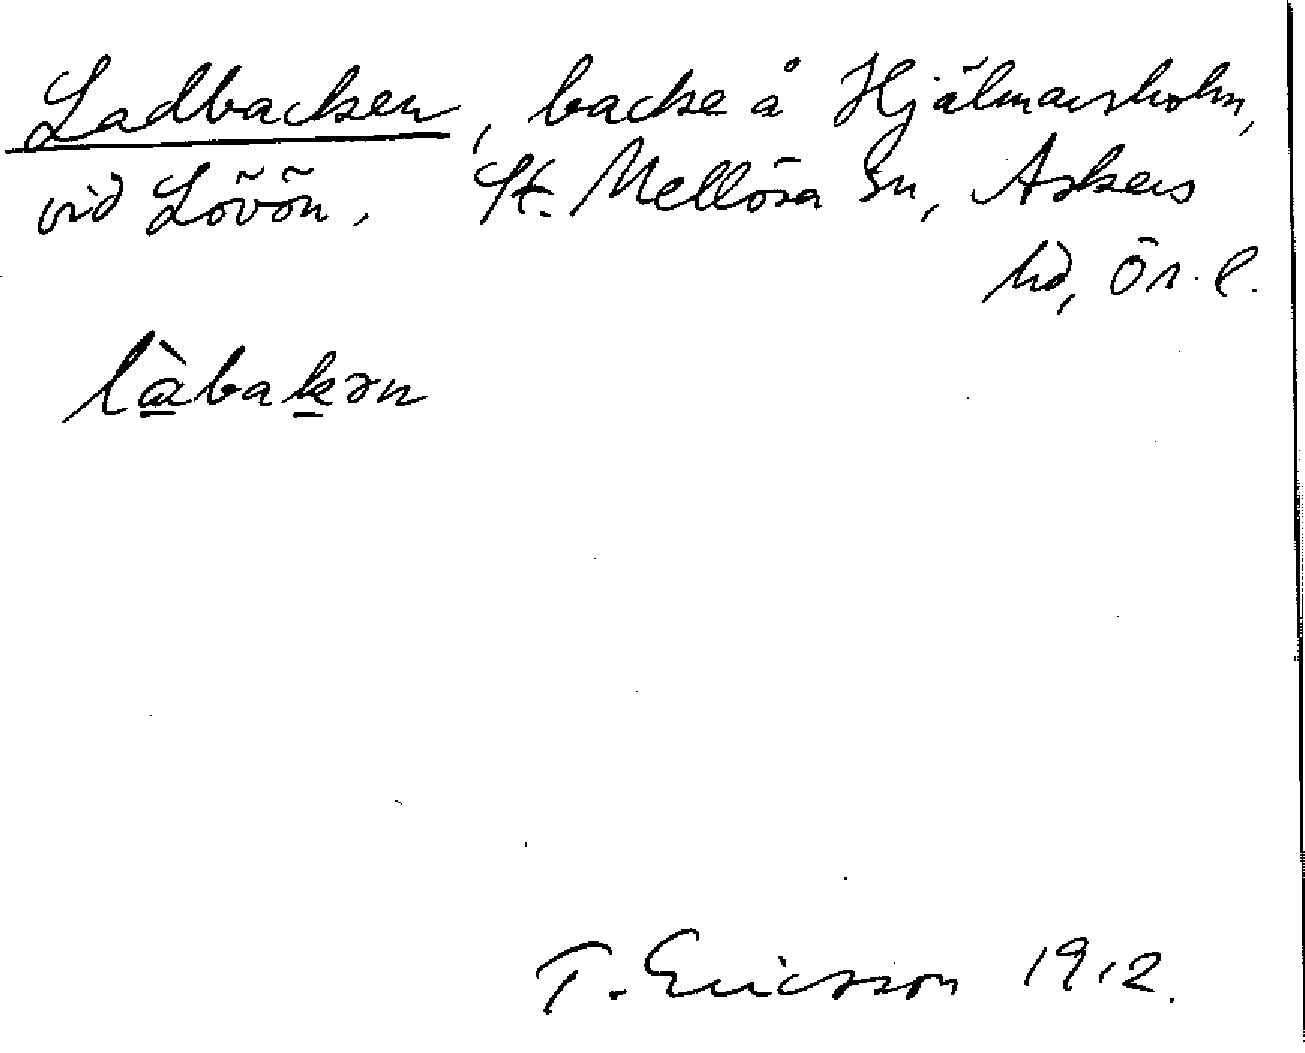 Ladbacken, backe å Hjälmarsholm,
vid Lövön, St. Mellösa sn, Askers
hd, Ör. l.
làbakən
T. Ericsson 1912.